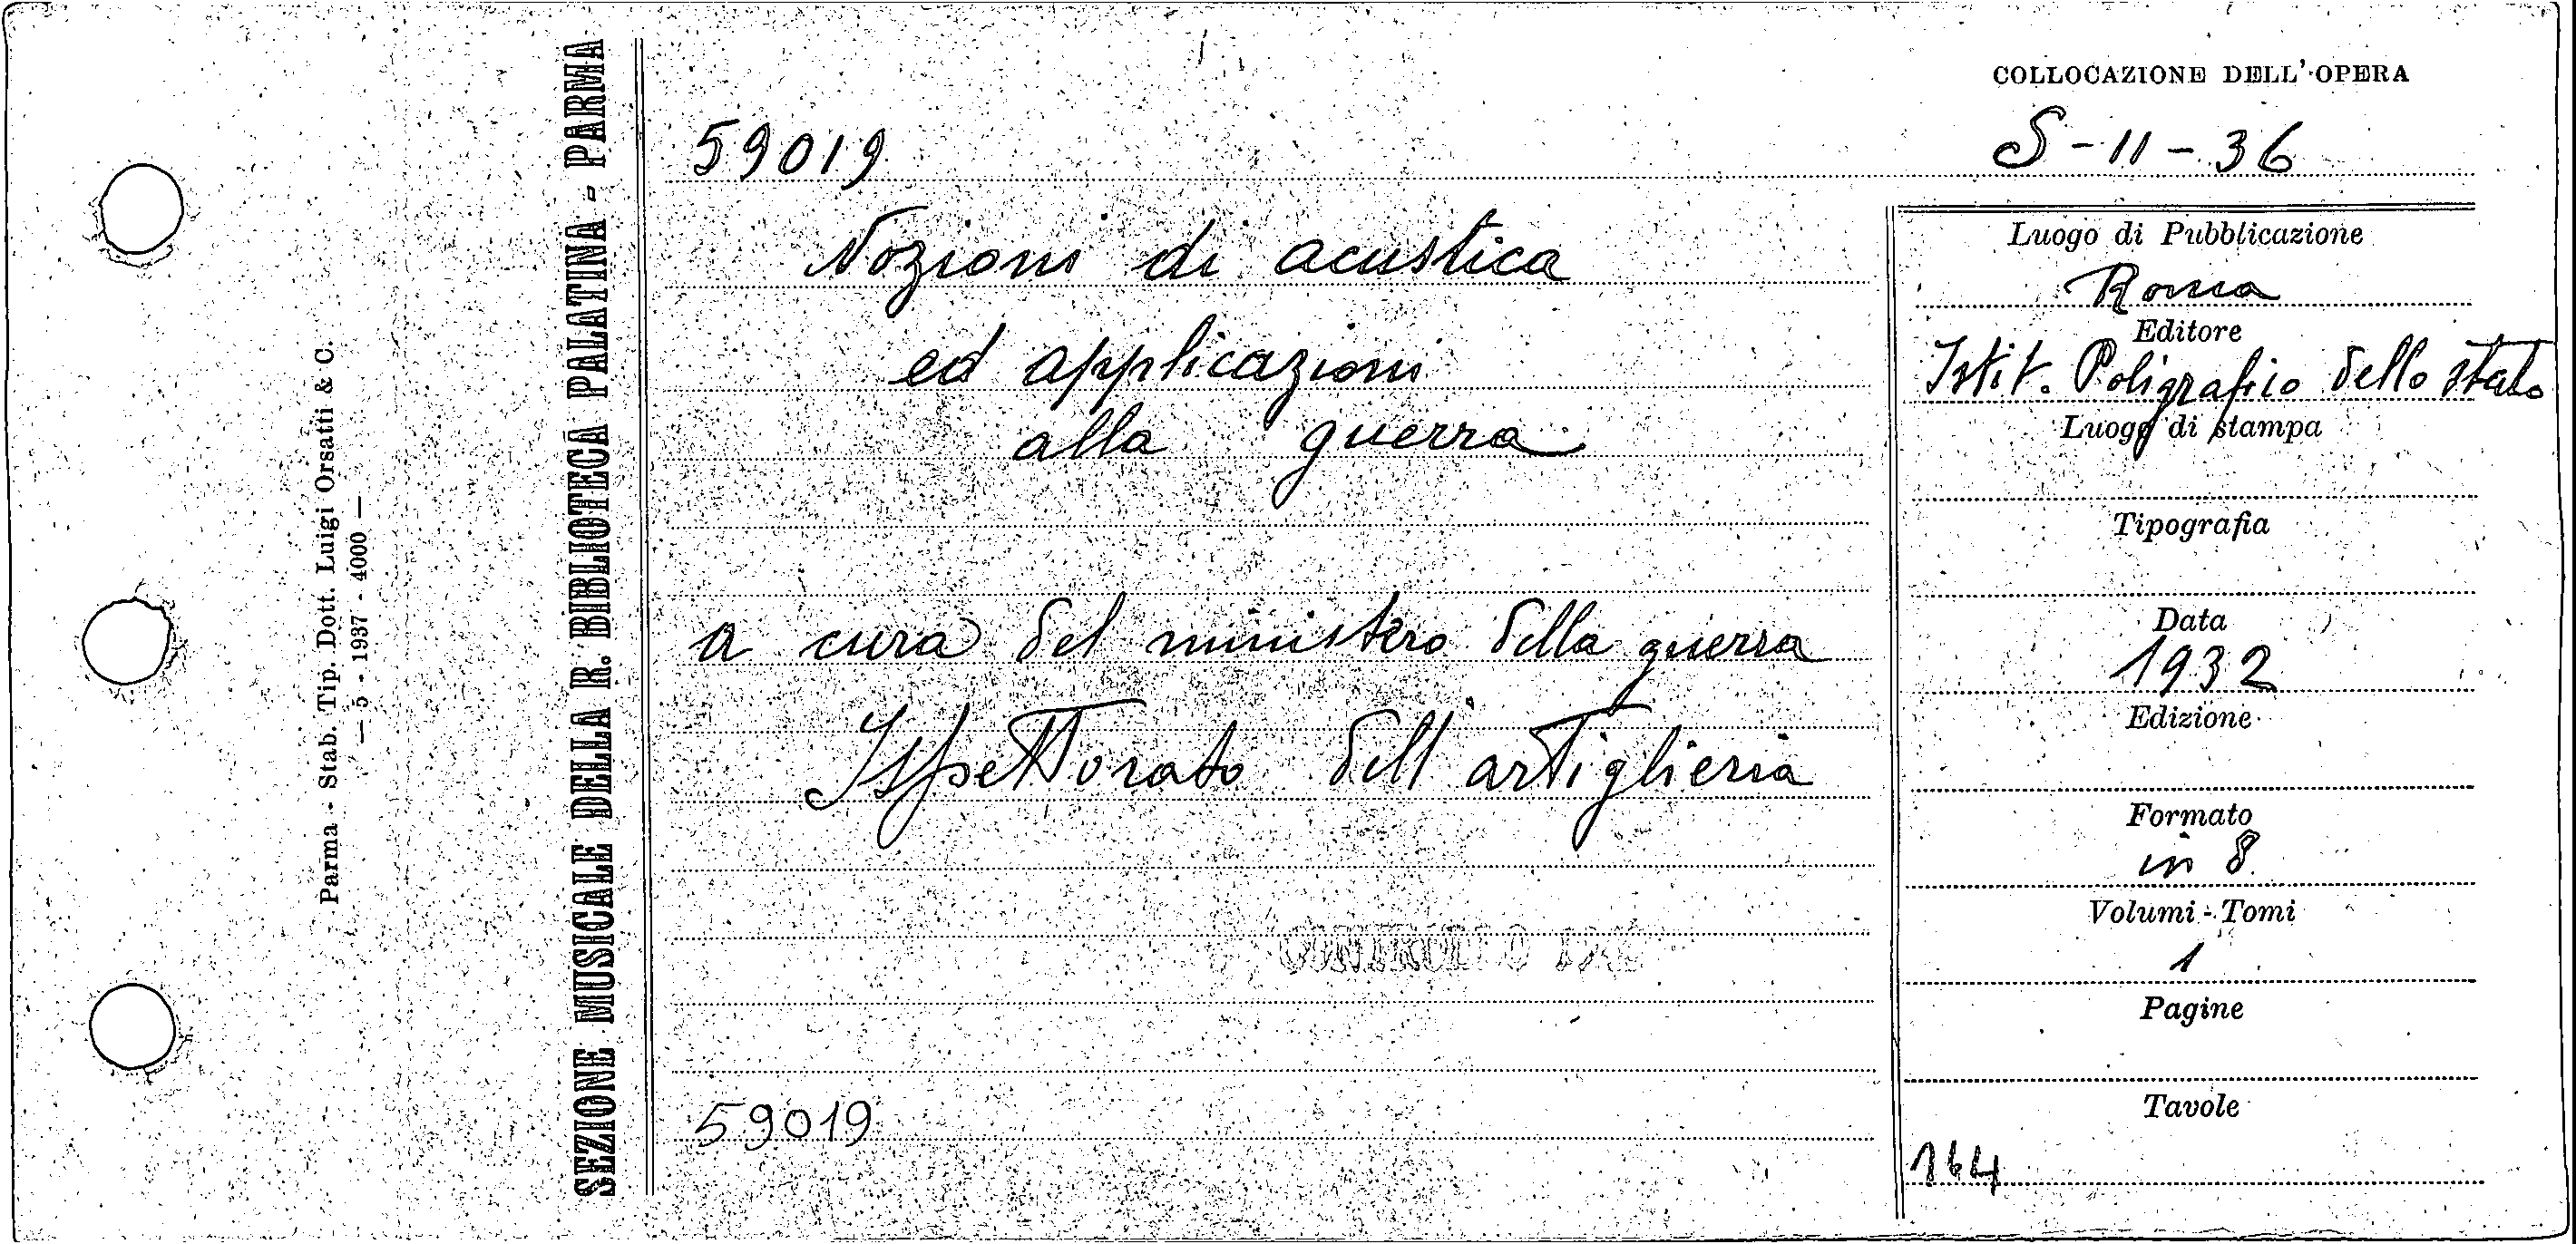 COLLOCAZIONE DELL' OPERA
59019
S-11-36
Nozioni di acustica
ed applicazioni
alla guerra
a cura del ministero della guerra
Ispettorato dell'artiglieria
CONTROLLO
59019
Luogo di Pubblicazione
Roma
Editore
Istit. Poligrafico dello stato
Luogo di stampa
Tipografia
Data
1932
Edizione
Formato
in 8
Volumi - Tomi
1
Pagine
Tavole
164
SEZIONE MUSICALE DELLA R. BIBLIOTECA PALATINA - PARMA
Parma - Stab. Tip. Dott. Luigi Orsatti & C.
— 5 - 1937 - 4000 —